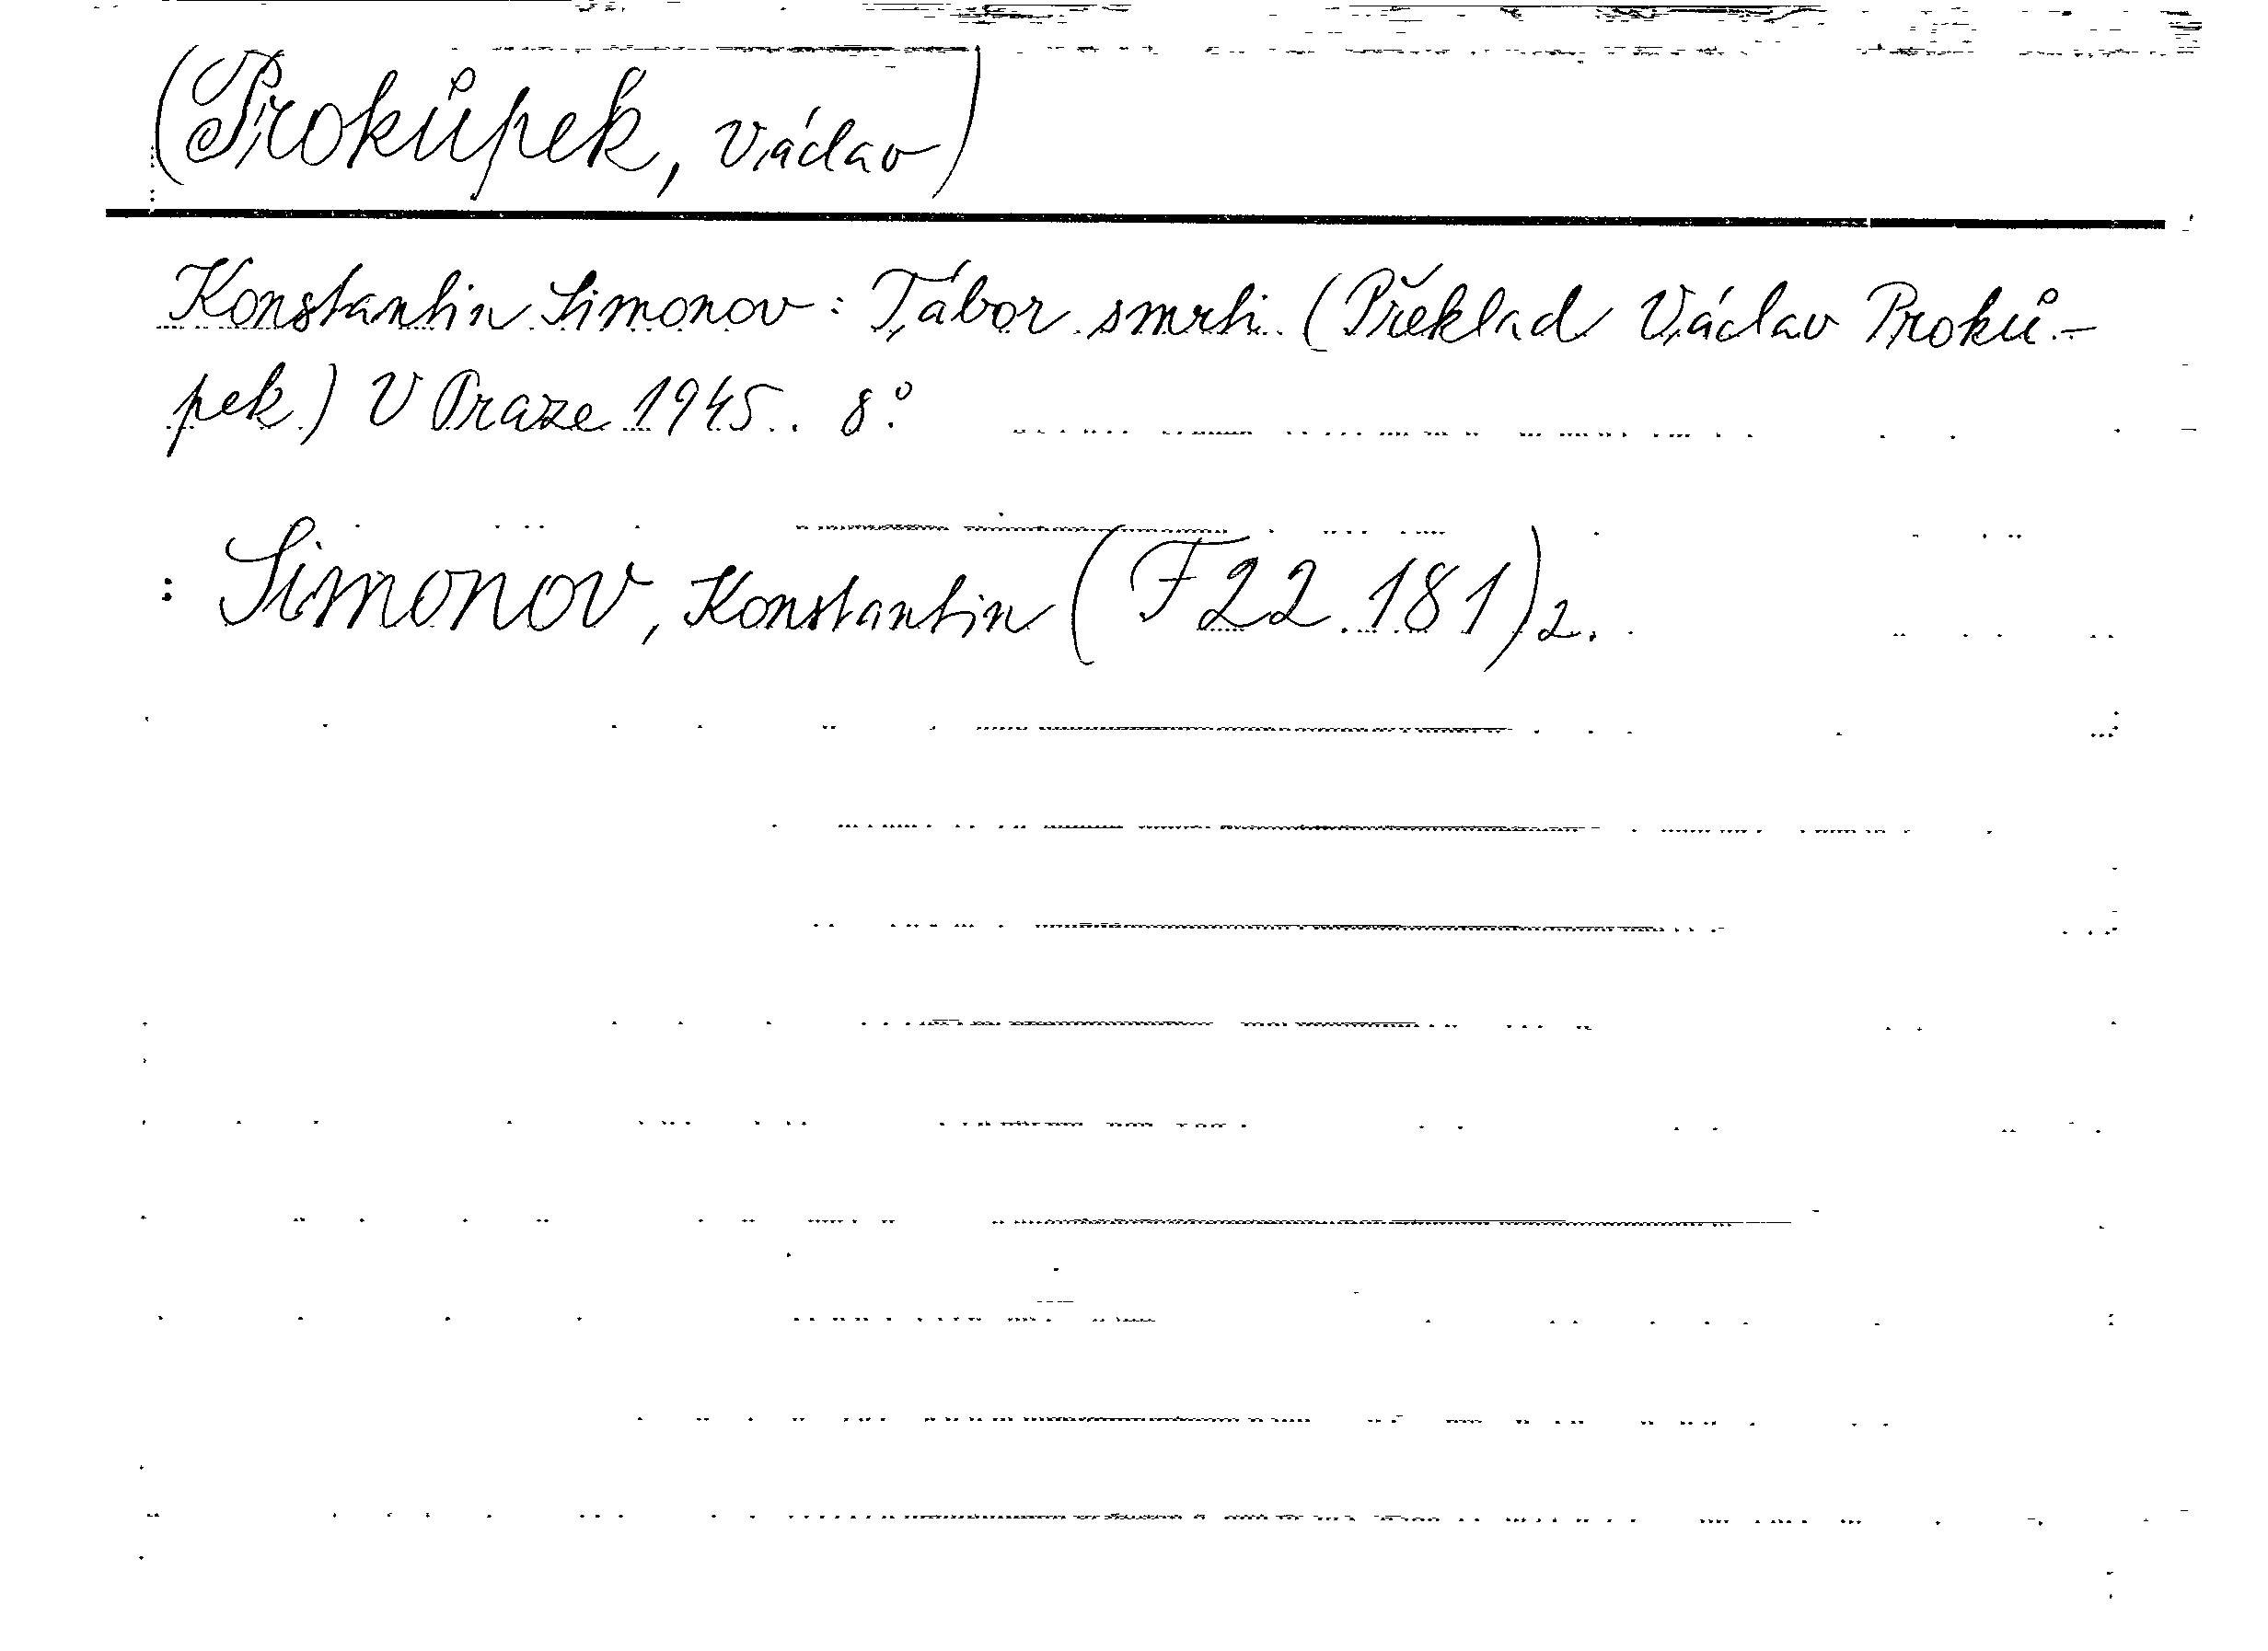 (Prokůpek, Václav)
Konstantin Simonov: Tábor smrti. (Překlad Václav Proků-
pek.) V Praze 1945. 8°.
: Simonov, Konstantin (F 22.181) 2.